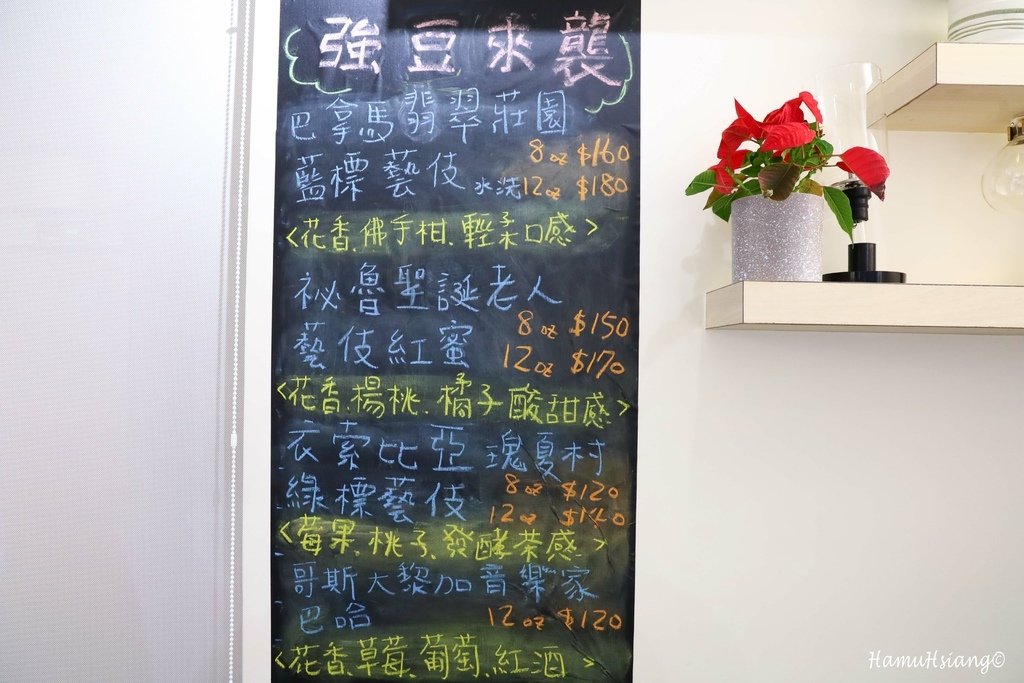 強豆來襲
巴拿馬翡翠莊園
8oz $160
藍標藝伎 水洗 12oz $180
<花香、佛手柑、輕柔口感>
祕魯聖誕老人
8oz $150
藝伎紅蜜 12oz $170
<花香、楊桃、橘子酸甜感>
衣索比亞 瑰夏村
8oz $120
綠標藝伎 12oz $140
<莓果、桃子、發酵茶感>
哥斯大黎加音樂家
巴哈 12oz $120
<花香、草莓、葡萄、紅酒>
HamuHsiang©